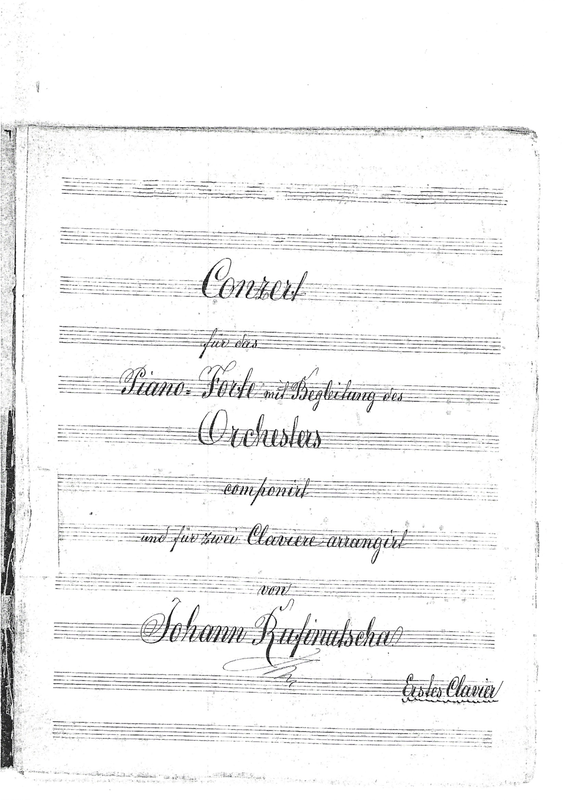 Conzert
für das
Piano-Forte mit Begleitung des
Orchesters
componirt
und für zwei Claviere arrangirt
von
Johann Rufinatscha
Erstes Clavier